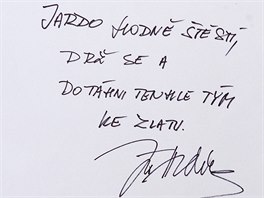 JARDO HODNĚ ŠTĚSTÍ,
DRŽ SE A
DOTÁHNI TENHLE TÝM
KE ZLATU.